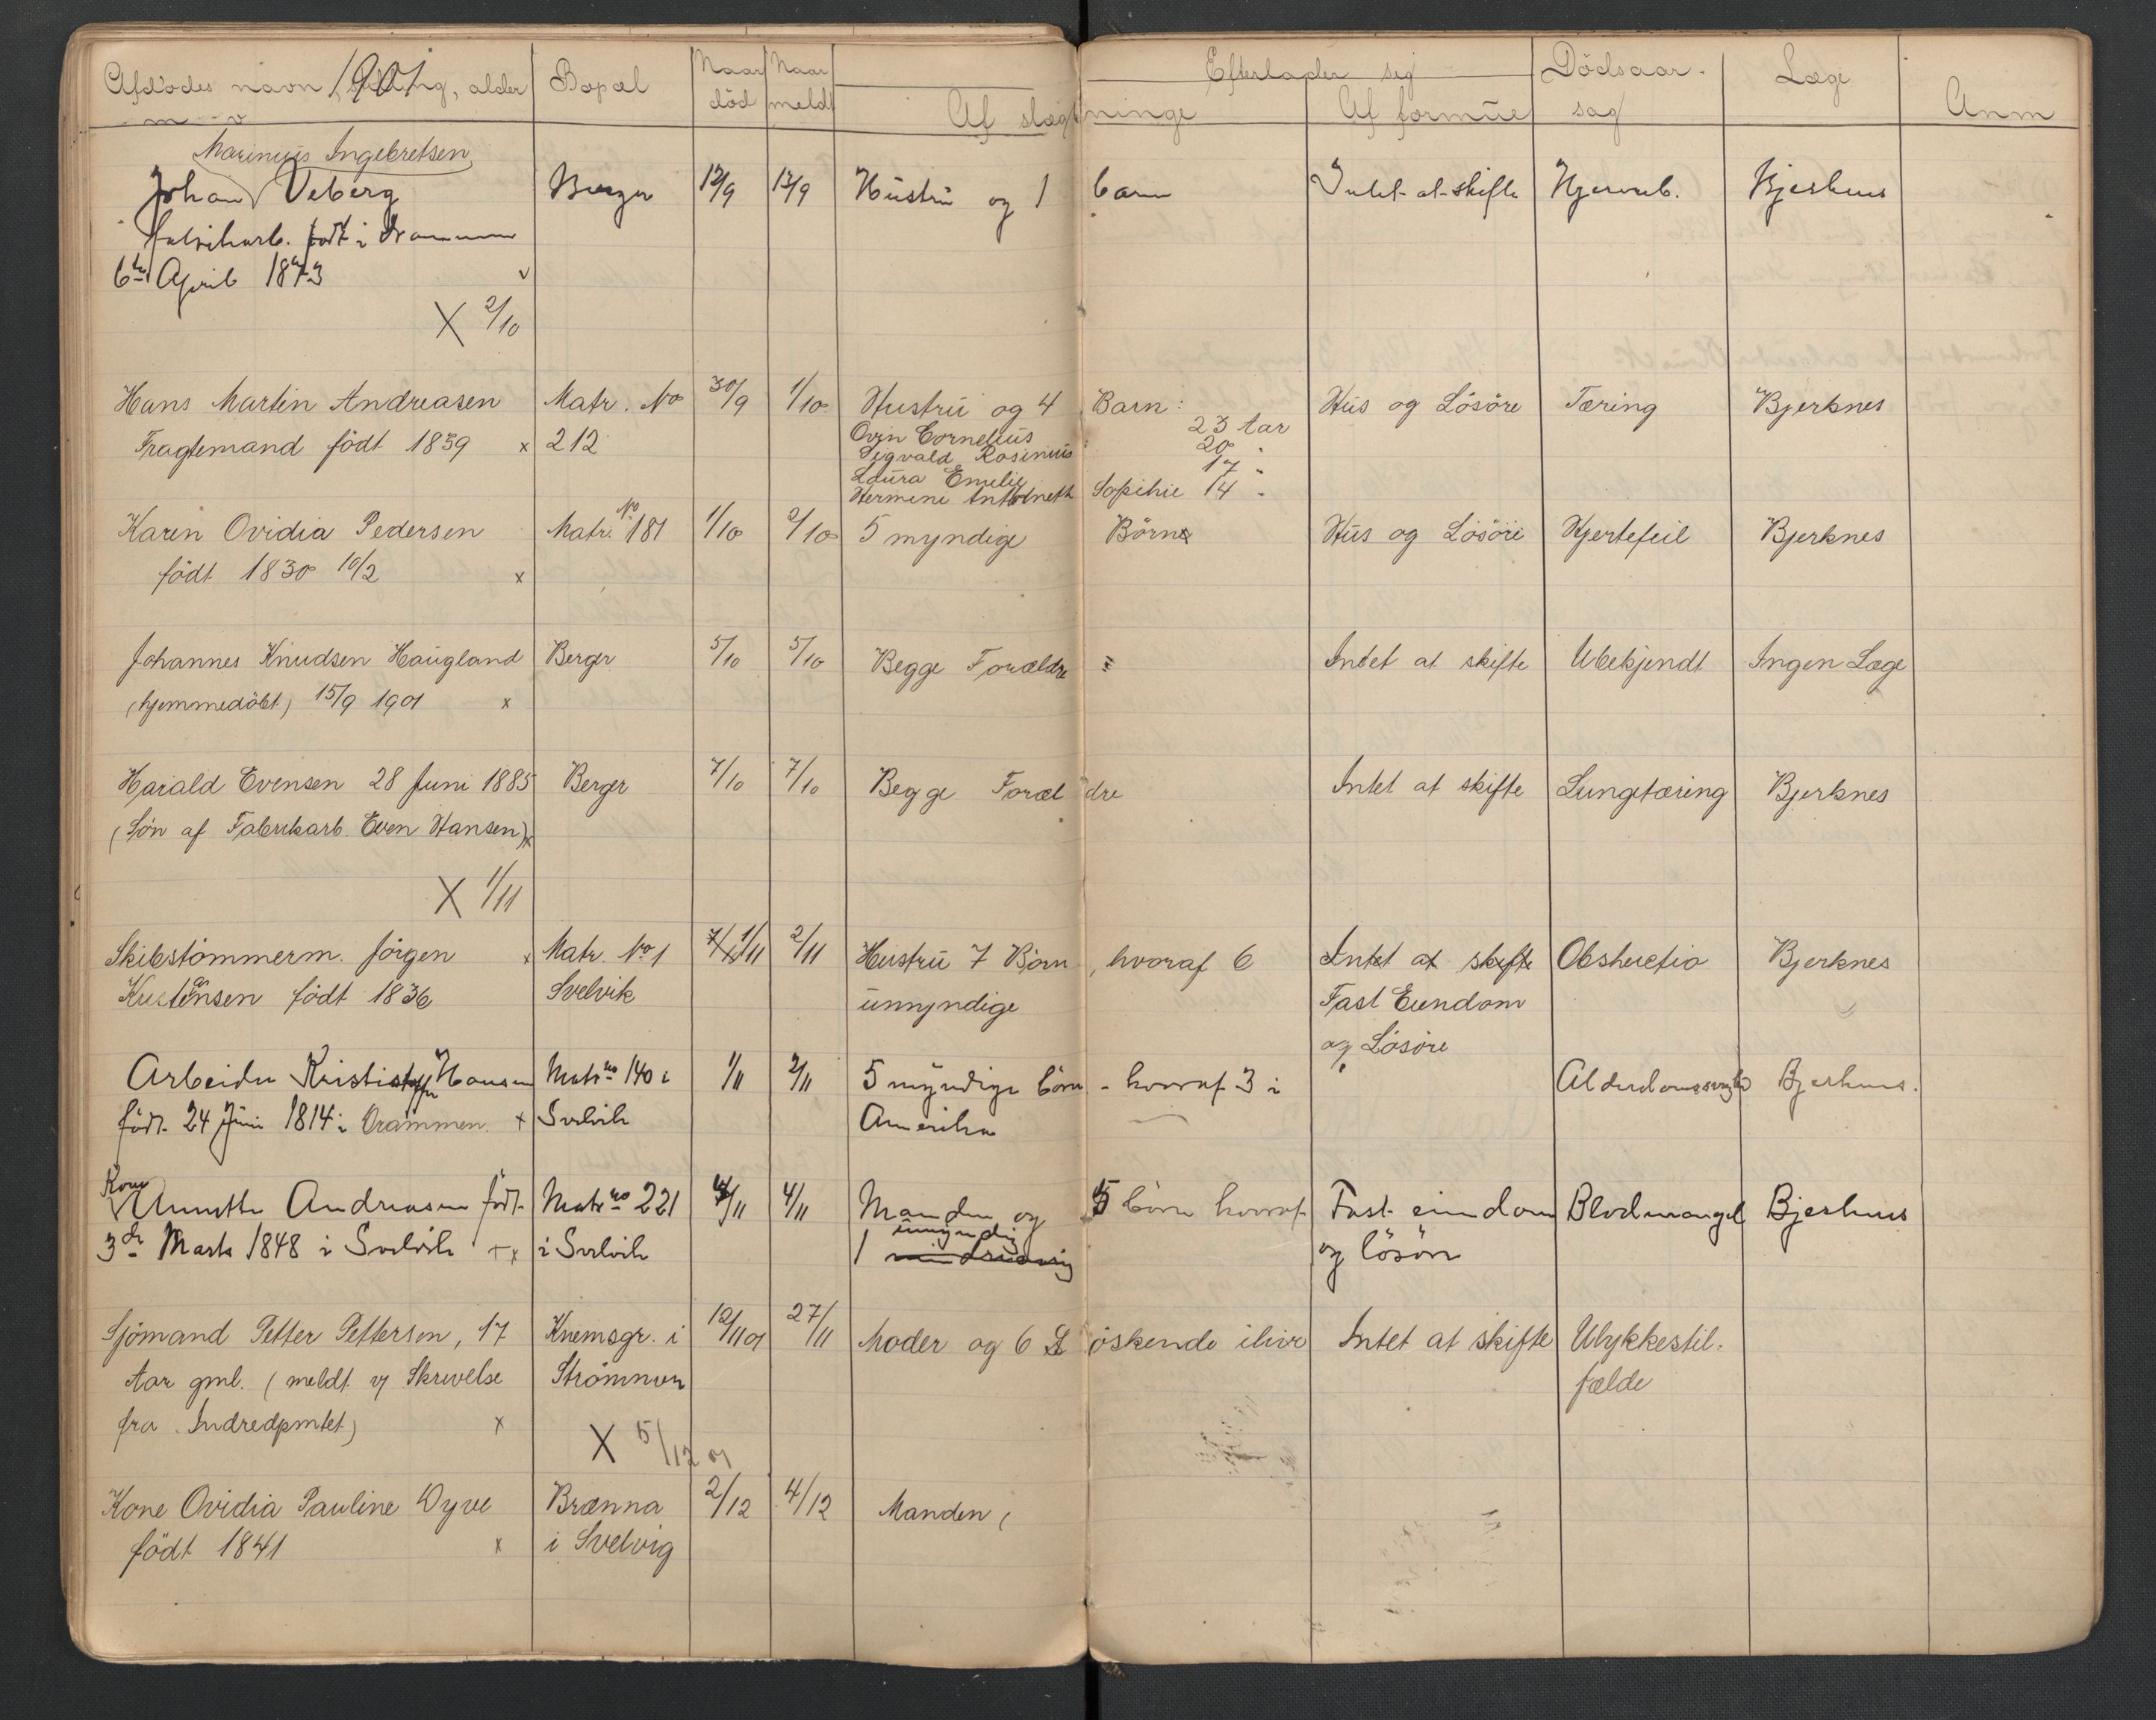 Afdødes navn, stilling, alder 1901 Bopæl Naar død Naar meldt Efterlader sig Dödsaar- Læge
m v Af slægtninge Af formue sag Anm
Marinius Ingebretsen
Johan Veberg Berger 12/9 13/9 Hustru og 1 barn Intet at skifte Bjerknes
fabrikarb. født i Drammen
6te April 1873 v
X 2/10
Hans Martin Andreasen Matr. No 30/9 1/10 Hustru og 4 Barn: Hus og Lösöre Tæring Bjerknes
Fragtemand födt 1839 x 212 Cornelius 23 Aar
Sigvald Rosinius 20 "
Laura Emilie 17 "
Hermine Antonett Sophie 14 "
Karen Ovidia Pedersen Matr. No 181 1/10 2/10 5 myndige Börn Hus og Lösöre Hjertefeil Bjerknes
födt 1830 10/2 x
Johannes Knudsen Haugland Berger 5/10 5/10 Begge Forældre Intet at skifte Ubekjendt Ingen Læge
(hjemmedöbt) 15/9 1901 x
Harald Evensen 28 Juni 1885 Berger 7/10 7/10 Begge Forældre Intet at skifte Lungetæring Bjerknes
(Sön af Fabrikarb. Even Hansen) x
X 1/11
Skibstömmerm. Jörgen x Matr. No 1 1/11 2/11 Hustru 7 Börn, hvoraf 6 Intet at skifte Obstructio Bjerknes
Kristensen födt 1836 Svelvik umyndige Fast Eiendom
og Lösöre
Arbeider Kristoffer Hansen Matr no 140 i 1/11 2/11 5 myndige börn - hvoraf 3 i Alderdomssvaghed Bjerknes.
födt 24 Juni 1814 i Drammen x Svelvik Amerika
Kone Annette Andreasen födt Matr no 221 4/11 4/11 Manden og 5 börn hvoraf Fast eiendom Blodmangel Bjerknes
3de Marts 1848 i Svelvik x i Svelvik 1 umyndig mindreaarig og lösöre
Sjömand Petter Pettersen, 17 Knemsgr. i 12/11 01 27/11 Moder og 6 Söskende ilive Intet at skifte Ulykkestil-
Aar gml. (meldt v Skrivelse Strömmen fælde
fra Indredpmtet) x
X 5/12 01
Kone Ovidia Pauline Dyve Brænna 2/12 4/12 Manden,
födt 1841 x i Svelvig